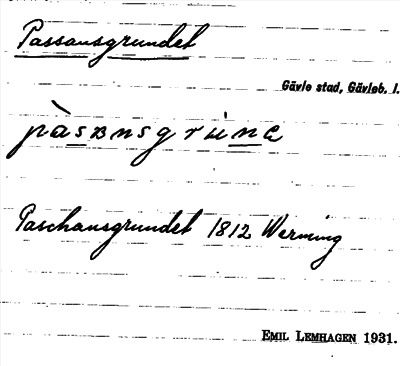 Passansgrundet
Gävle stad, Gävleb. l.
pàsansgrunɛ
Paschansgrundet 1812 Werming
EMIL LEMHAGEN 1931.